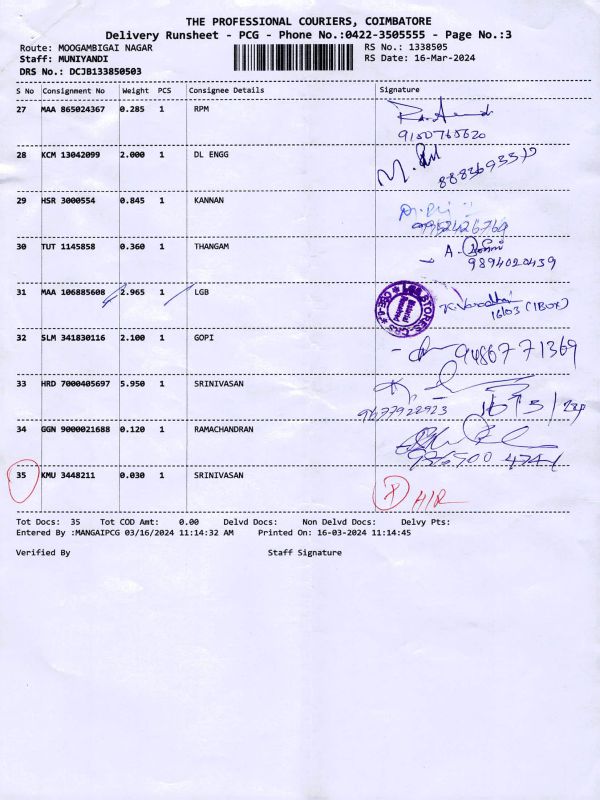 THE PROFESSIONAL COURIERS, COIMBATORE
Delivery Runsheet - PCG - Phone No.:0422-3505555 - Page No.:3
Route: MOOGAMBIGAI NAGAR
RS No.: 1338505
Staff: MUNIYANDI
RS Date: 16-Mar-2024
DRS No.: DCJB133850503
S No Consignment No Weight PCS Consignee Details Signature
27 MAA 865024367 0.285 1 RPM
9150765620
28 KCM 13042099 2.000 1 DL ENGG
29 HSR 3000554 0.845 1 KANNAN
30 TUT 1145858 0.360 1 THANGAM
9894020439
31 MAA 106885608 2.965 1 LGB
LGB STORES-CAS
16/03 (1BOX)
32 SLM 341830116 2.100 1 GOPI
9486771369
33 HRD 7000405697 5.950 1 SRINIVASAN
9677922923
34 GGN 9000021688 0.120 1 RAMACHANDRAN
35 KMU 3448211 0.030 1 SRINIVASAN
Tot Docs: 35 Tot COD Amt: 0.00 Delvd Docs: Non Delvd Docs: Delvy Pts:
Entered By :MANGAIPCG 03/16/2024 11:14:32 AM Printed On: 16-03-2024 11:14:45
Verified By Staff Signature